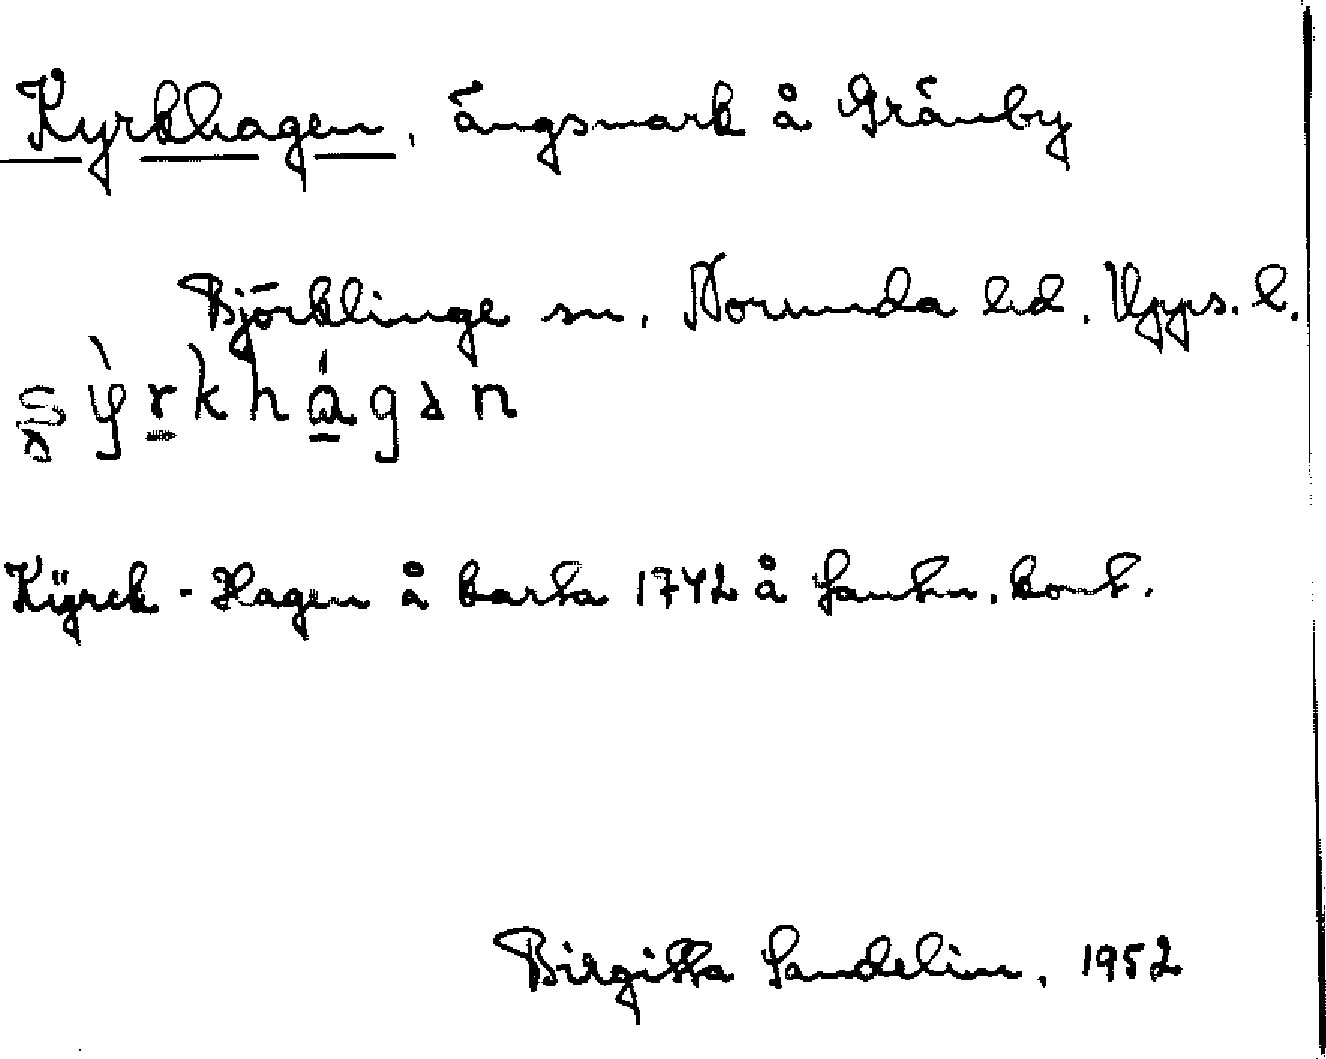 Kyrkhagen, ängsmark å Gränby
Björklinge sn, Norunda hd, Upps. l.
Kÿrck-Hagen å karta 1742 å Lantm. kont.
Birgitta Sandelin, 1952